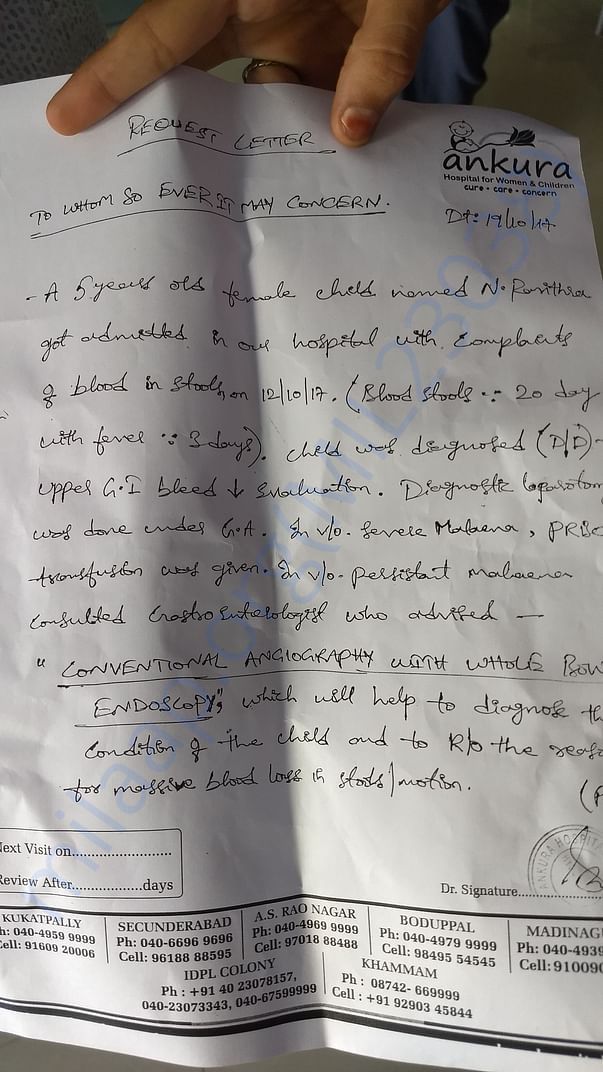 REQUEST LETTER
ankura
Hospital for Women & Children
cure • care • concern
TO WHOM SO EVER IT MAY CONCERN.
Dt: 19/10/17
- A 5 years old female child named N. Pavithra
got admitted in our hospital with complaints
of blood in stools, on 12/10/17. (Blood stools ∵ 20 day
with fever ∵ 3 days). child was diagnosed (D/D) -
upper G.I bleed ↓ evaluation. Diagnostic laparotom
was done under G.A. In v/o. Severe Malaena, PRBC
transfusion was given. In v/o. persistant malaena
consulted Gastroenterologist who advised —
"CONVENTIONAL ANGIOGRAPHY WITH WHOLE BOW
ENDOSCOPY", which will help to diagnose th
condition of the child and to R/o the reas
for massive blood loss in stools/motion.
(P
Next Visit on...........................
Review After..................days
Dr. Signature
ANKURA HOSPITA
KUKATPALLY
h: 040-4959 9999
Cell: 91609 20006
SECUNDERABAD
Ph: 040-6696 9696
Cell: 96188 88595
A.S. RAO NAGAR
Ph: 040-4969 9999
Cell: 97018 88488
BODUPPAL
Ph: 040-4979 9999
Cell: 98495 54545
MADINAG
Ph: 040-4939
Cell: 910090
IDPL COLONY
Ph : +91 40 23078157,
040-23073343, 040-67599999
KHAMMAM
Ph : 08742- 669999
Cell : +91 92903 45844